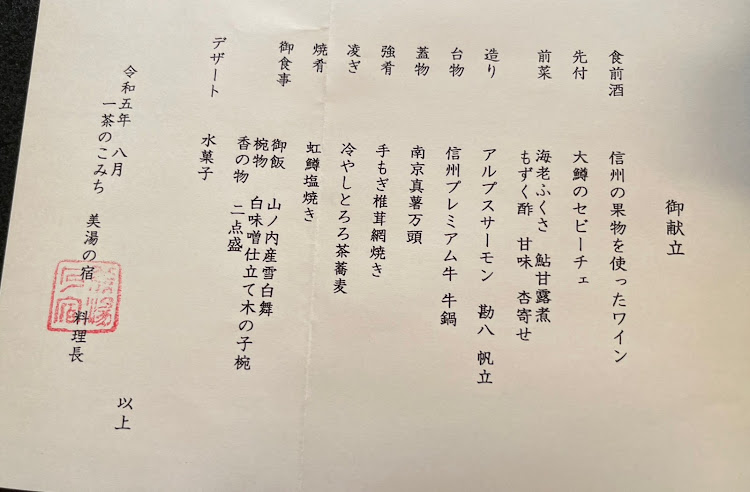 御献立
食前酒 信州の果物を使ったワイン
先付 大鱒のセビーチェ
前菜 海老ふくさ 鮎甘露煮
もずく酢 甘味 杏寄せ
造り アルプスサーモン 勘八 帆立
台物 信州プレミアム牛 牛鍋
蓋物 南京真薯万頭
強肴 手もぎ椎茸網焼き
凌ぎ 冷やしとろろ茶蕎麦
焼肴 虹鱒塩焼き
御食事 御飯 山ノ内産雪白舞
椀物 白味噌仕立て木の子椀
香の物 二点盛
デザート 水菓子
以上
令和五年 八月
一茶のこみち 美湯の宿
料理長
美湯之宿